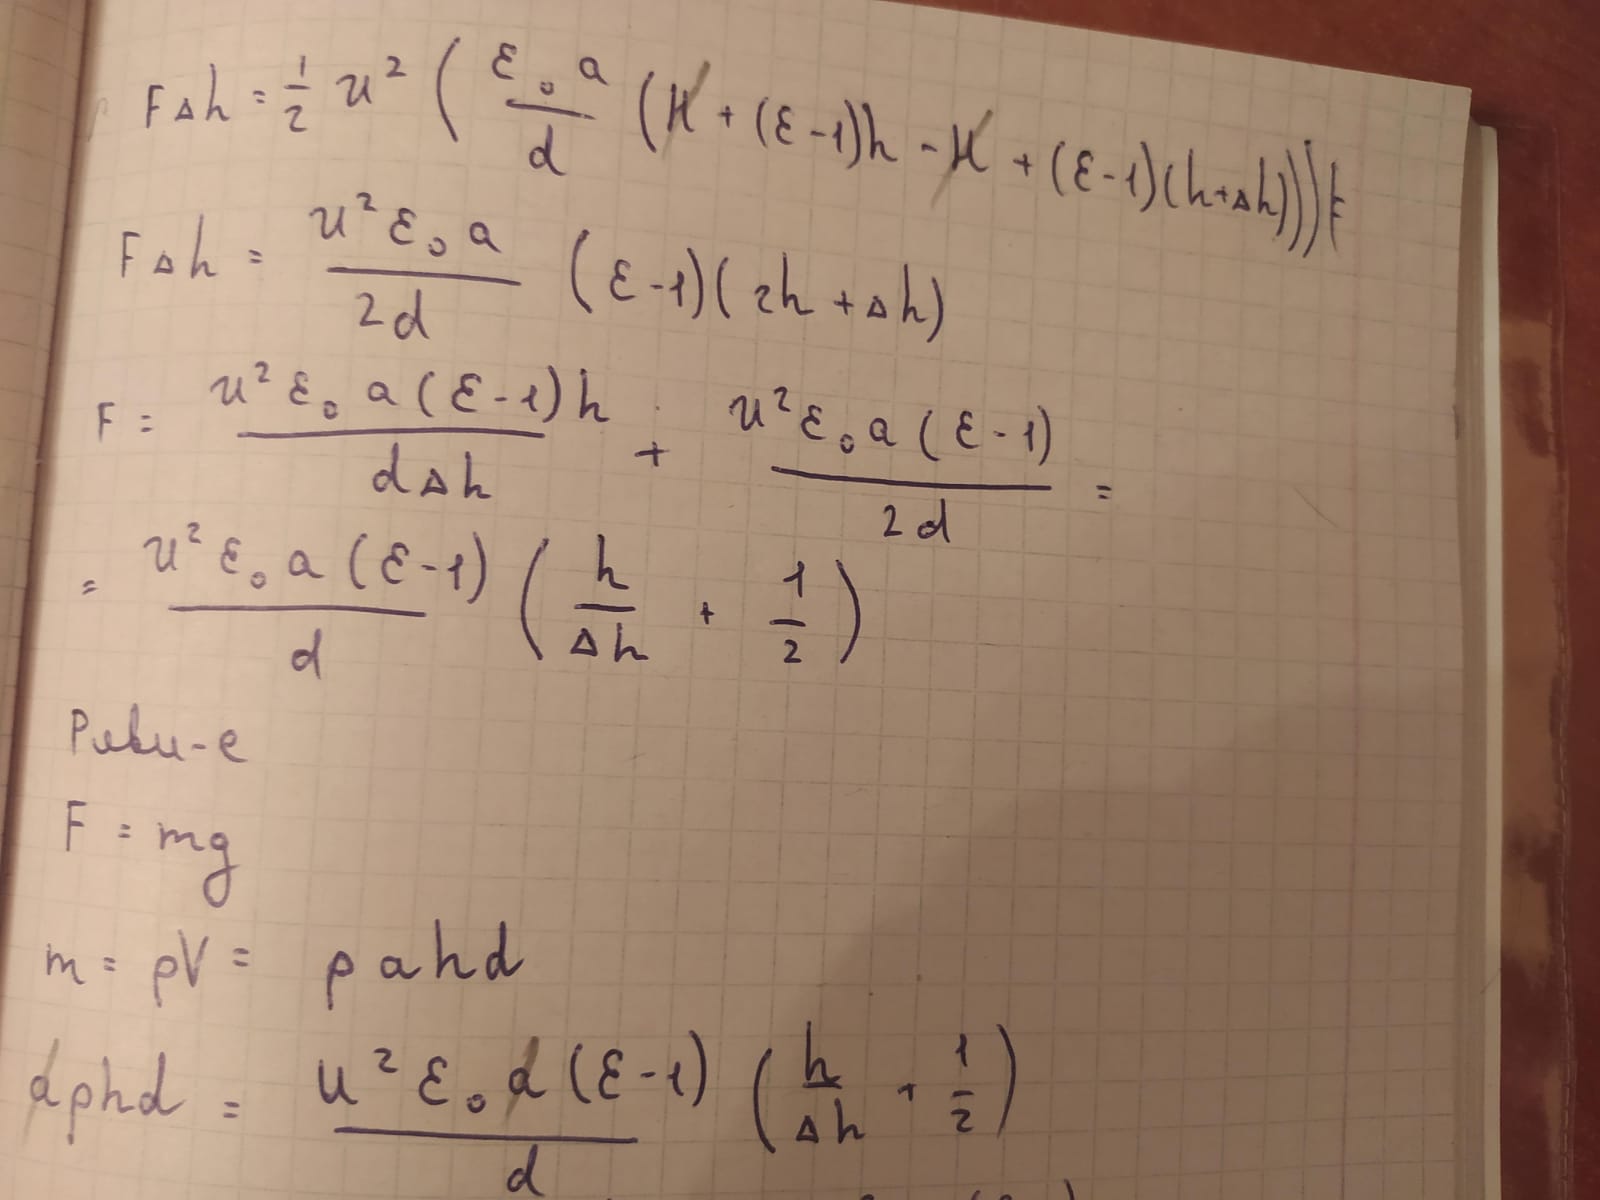 FΔh = 1/2 u² ( ε₀a/d (H + (ε-1)h - H + (ε-1)(h+Δh)))
FΔh = u²ε₀a/2d (ε-1)(2h + Δh)
F = u²ε₀a(ε-1)h/dΔh + u²ε₀a(ε-1)/2d =
= u²ε₀a(ε-1)/d (h/Δh + 1/2)
F = mg
m = ρV = ρahd
aρhd = u²ε₀a(ε-1)/d (h/Δh + 1/2)